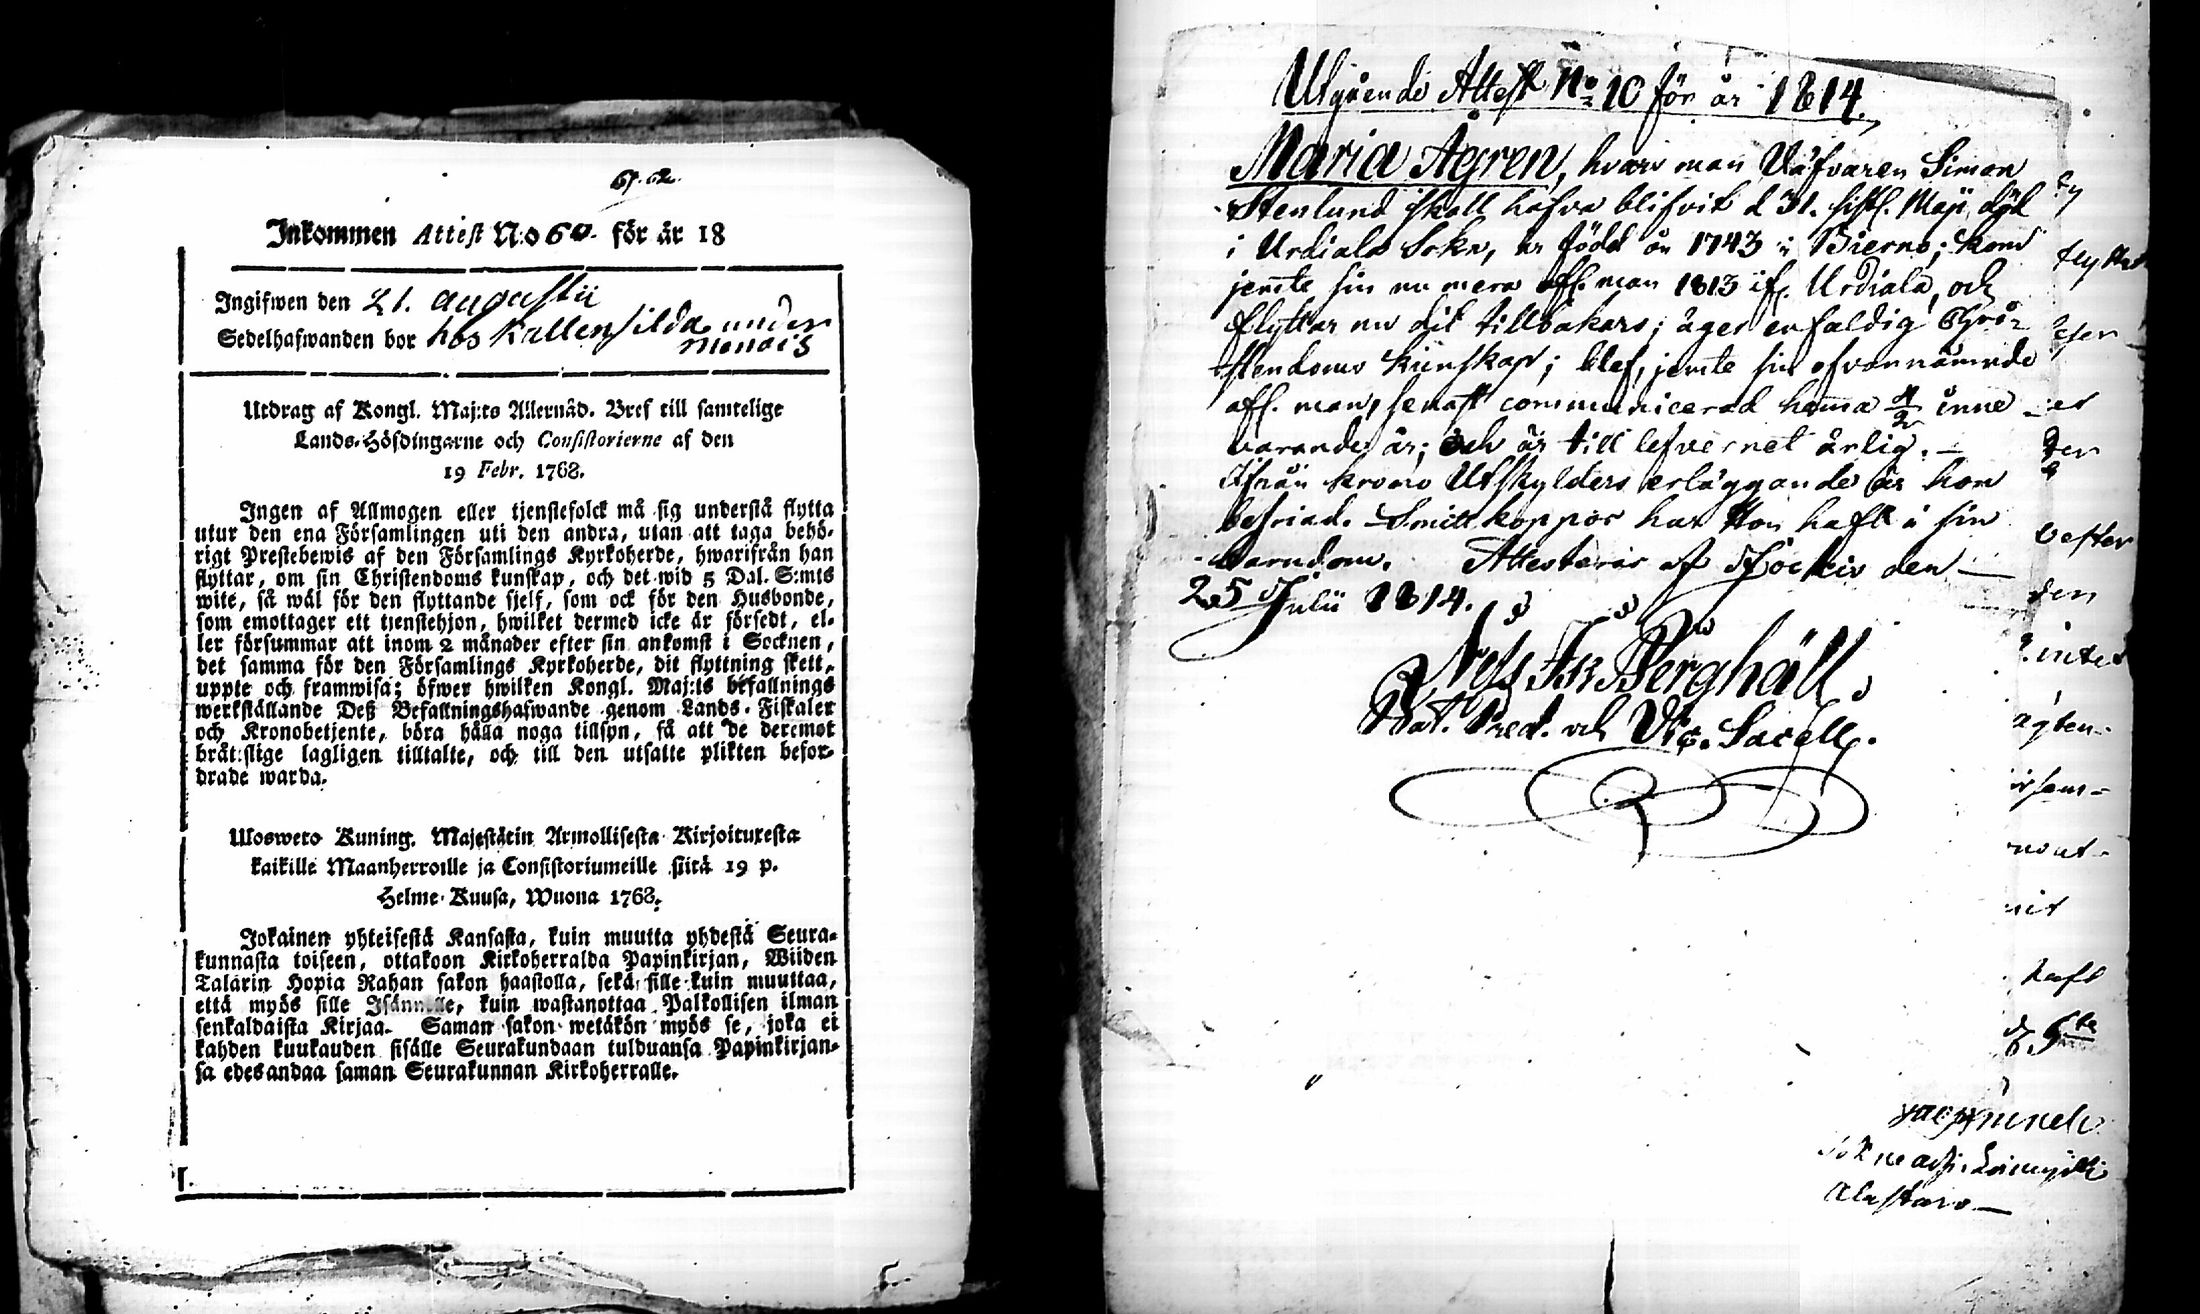 61. 62.
Inkommen Attest N:o 60. för år 18
Ingifwen den 21. augustii
Sedelhafwanden bor hos Kallensilda under
Monois
Utdrag af Kongl. Maj:ts Allernåd. Bref till samtelige
Lands-Höfdingarne och Consistorierne af den
19 Febr. 1768.
Ingen af Allmogen eller tjenstefolck må sig understå flytta
utur den ena Församlingen uti den andra, utan att taga behö-
rigt Prestebewis af den Församlings Kyrkoherde, hwarifrån han
flyttar, om sin Christendoms kunskap, och det wid 5 Dal. S:mts
wite, så wäl för den flyttande sjelf, som ock för den Husbonde,
som emottager ett tjenstehjon, hwilket dermed icke är försedt, el-
ler försummar att inom 2 månader efter sin ankomst i Socknen,
det samma för den Församlings Kyrkoherde, dit flyttning skett,
uppte och framwisa; öfwer hwilken Kongl. Maj:ts befallnings
werkställande Deß Befallningshafwande genom Lands-Fiskaler
och Kronobetjente, böra hålla noga tillsyn, så att de deremot
bråtslige lagligen tilltalte, och till den utsatte plikten befor-
drade warda.
Ulosweto Kuning. Majestätin Armollisesta Kirjoituxesta
kaikille Maanherroille ja Consistoriumeille siitä 19 p.
Helme-Kuusa, Wuona 1768.
Jokainen yhteisestä Kansasta, kuin muutta yhdestä Seura-
kunnasta toiseen, ottakoon Kirkoherralda Papinkirjan, Wiiden
Talarin Hopia Rahan sakon haastolla, sekä sille kuin muuttaa,
että myös sille kuin wastanottaa Palkollisen ilman
senkaldaista Kirjaa. Saman sakon wetäkön myös se, joka ei
kahden kuukauden sisälle Seurakundaan tulduansa Papinkirjan-
sa edesandaa saman Seurakunnan Kirkoherralle.
Utgående Attest No 10 för år 1814.
Maria Ågren, hvars man Väfvaren Simon
Stenlund skall hafva blifvit d 31. sistl. Maji död
i Urdiala Sokn, är född år 1743 i Bierno; kom
jemte sin nu mera afl. man 1813 if. Urdiala, och
flyttar nu dit tillbakars; äger enfaldig Chri-
stendoms kunskap; blef, jemte sin ofvannämnde
afl. man, senast communicerad hemma inne
varande år; och är till lefvernet ärlig. —
Ifrån krono Utskylders erläggande är hon
befriad. Smittkoppor har Hon haft i sin
barndom. Attesterar af Jockis den —
25 Julii 1814.
Nils Joh Berghäll.
Bat. Pred. och Vic. Sacell.
flytta
vester
den
intet
ägten-
haft
d 5te
Alastaro —